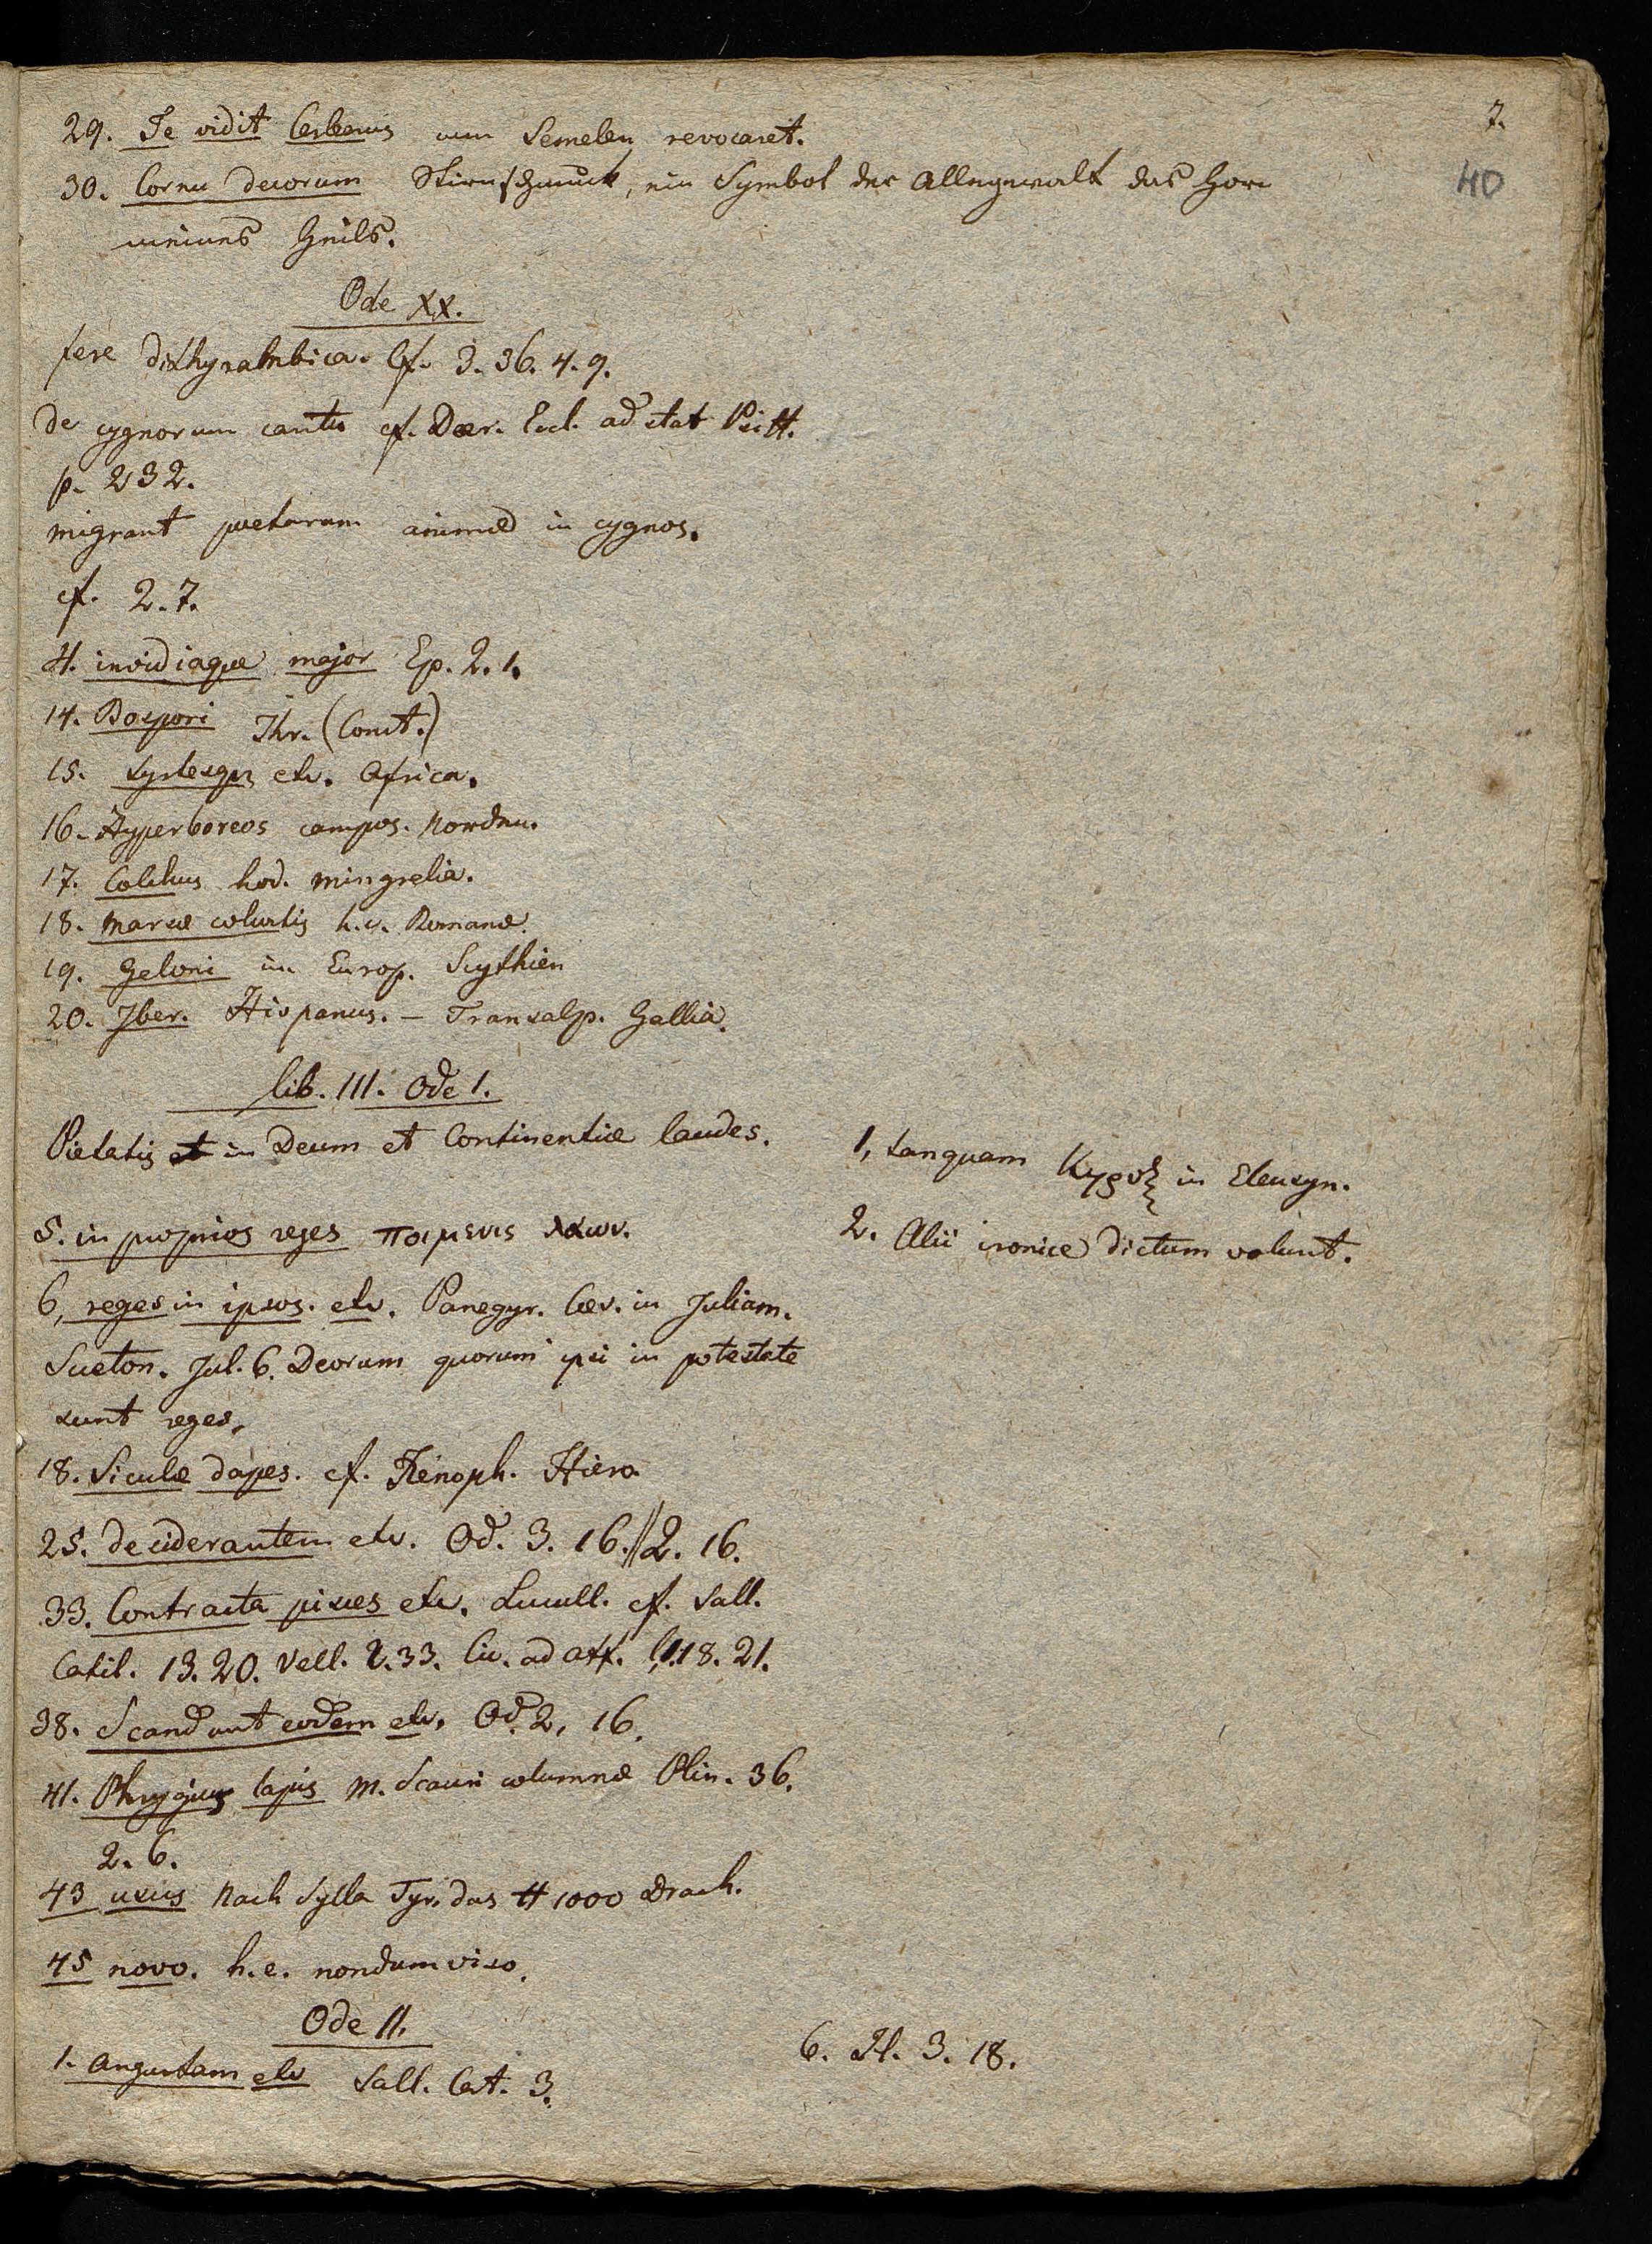 7.
40
29. Te vidit Cerberus cum Semelen revocaret.
30. Cornu decorum Stirnschmuck, ein Symbol der Allegewalt das Horn
meines Heils.
Ode XX.
fere dithyrambica. Cf. 3. 36. 4. 9.
De cygnorum cantu cf. Ecl. ad stat Psitt.
p. 232.
migrant poetarum animæ in cygnos.
cf. 2. 7.
4. invidiaque major Ep. 2. 1.
14. Bospori Thr. (Const.)
15. Syrtesque etc. Africa.
16. Hyperboreos campos. Norden.
17. Colchus hod. Mingrelia.
18. Marsæ cohortis h.e. Romanæ.
19. Geloni im Europ. Scythien
20. Iber. Hispanus. – Transalp. Gallia.
Lib. III. Ode 1.
Pietatis et in Deum et Continentiæ laudes.
1, tanquam Κηρυξ in Eleusyn.
2. Alii ironice dictum volunt.
5. in proprios reges ποιμενες λαων.
6, reges in ipsos. etc. Panegyr. Cæs. in Juliam.
Sueton. Jul. 6. Deorum quorum ipsi in potestate
sunt reges.
18. Siculæ dapes. cf. Xenoph. Hiero
25. desiderantem etc. Od. 3. 16. // 2. 16.
33. Contracta pisces etc. Lucull. cf. Sall.
Catil. 13. 20. Vell. 2. 33. Cic. ad Att. 1. 18. 21.
38. Scandunt eodem etc. Od. 2, 16.
41. Phrygius lapis M. Scauri columnæ Plin. 36.
2. 6.
43 usus Nach Sylla Tyr. das ℔ 1000 Drach.
45 novo. h.e. nondum viso.
Ode II.
1. Angustam etc Sall. Cat. 3.
6. Il. 3. 18.